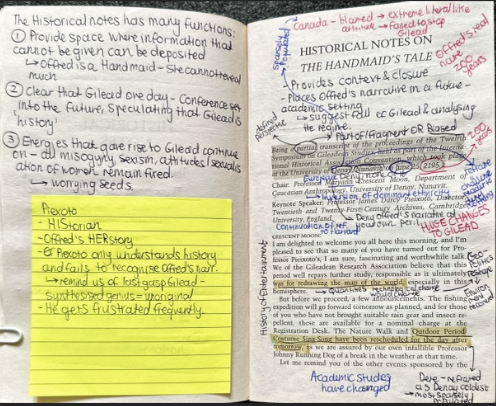 The Historical notes has many functions:
① Provide space where information that
cannot be given can be deposited
↳ Offred is a Handmaid - she cannot reveal
much
② Clear that Gilead one day - Conference set
into the future, speculating that Gilead is
'history'
③ Energies that gave rise to Gilead continue
on - all misogyny, sexism, attitudes, sexualis
ation of women remain fired.
↳ worrying seeds.
Piexoto
- Historian
- Offred's HERstory
- Piexoto only understands history
and fails to recognise Offred's narr.
↳ remind us of last gasp Gilead -
synthesised genius - unoriginal
- He gets frustrated frequently.
Canada - blamed → extreme literal like
attitude → failed to stop
Gilead
sparsely
populated
HISTORICAL NOTES ON
THE HANDMAID'S TALE
Offred's real
name
200
years
Provides context & closure
- Places Offred's narrative in a future -
academic setting
↳ suggest fall of Gilead & analysing
the regime.
Part of/fragment or Biased
Being a partial transcript of the proceedings of the Twelfth
Symposium on Gileadean Studies, held as part of the International
Historical Association Convention, which took place
at the University of Denay, Nunavit,
2195.
200
years
Chair: Professor Maryann Crescent Moon, Department of
Caucasian Anthropology, University of Denay, Nunavit.
Inversion of dominant ethnicity
Keynote Speaker: Professor James Darcy Pieixoto, Director,
Twentieth and Twenty-First-Century Archives, Cambridge
University, England.
HUGE CHANGES
TO GILEAD
Deny Offred's narrative
CRESCENT MOON:
I am delighted to welcome you all here this morning, and I'm
pleased to see that so many of you have turned out for Professor
Pieixoto's, I am sure, fascinating and worthwhile talk.
We of the Gileadean Research Association believe that this
period well repays further study, responsible as it ultimately
was for redrawing the map of the world, especially in this
hemisphere.
But before we proceed, a few announcements. The fishing
expedition will go forward tomorrow as planned, and for those
of you who have not brought suitable rain gear and insect repellent,
these are available for a nominal charge at the
Registration Desk. The Nature Walk and Outdoor Period-
Costume Sing-Song have been rescheduled for the day after
tomorrow, as we are assured by our own infallible Professor
Johnny Running Dog of a break in the weather at that time.
Let me remind you of the other events sponsored by the
History of Entertainment
Academic studies
have changed
most sparsely
populated